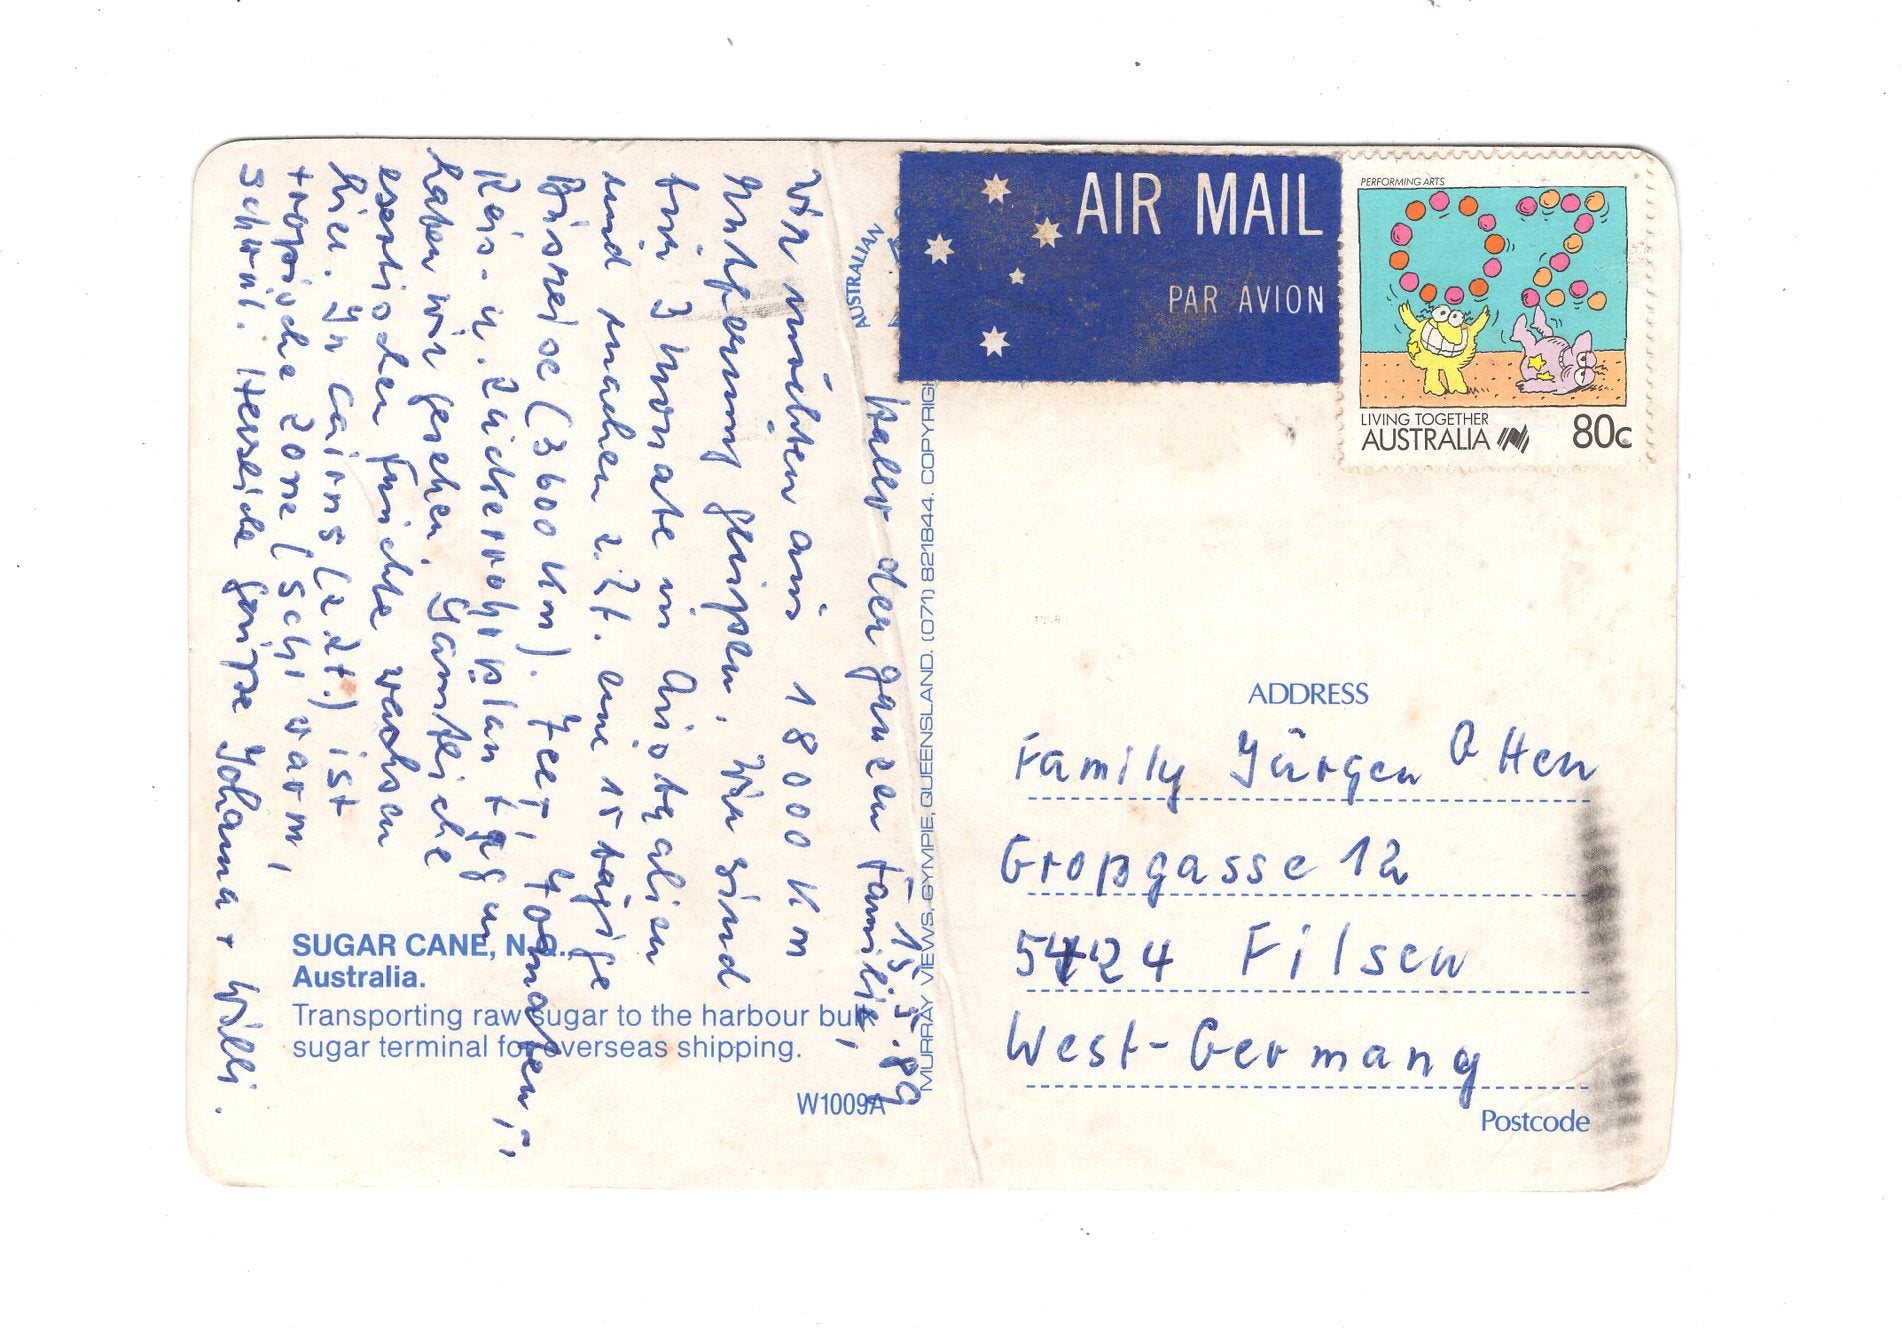 AIR MAIL
PAR AVION
PERFORMING ARTS
LIVING TOGETHER
AUSTRALIA
80c
AUSTRALIAN
15.5.89
Hallo der ganzen Familie,
Wir möchten aus 18000 km
Entfernung grüßen. Wir sind
für 3 Monate in Australien
und machen z.Zt. eine 15 tägige
Busreise (3600 km). Tee-, Tomaten-,
Reis- u. Zuckerrohrplantagen
haben wir gesehen. Sämtliche
exotischen Früchte wachsen
hier. In Cairns (z Zt.) ist
tropische Zone (sehr warm,
schwül. Herzliche Grüße Johanna + Willi.
SUGAR CANE, N.Q.,
Australia.
Transporting raw sugar to the harbour bulk
sugar terminal for overseas shipping.
W1009A
MURRAY VIEWS, GYMPIE, QUEENSLAND. (071) 821844. COPYRIGH
ADDRESS
Family Jürgen Otten
Großgasse 12
5424 Filsen
West-Germany
Postcode